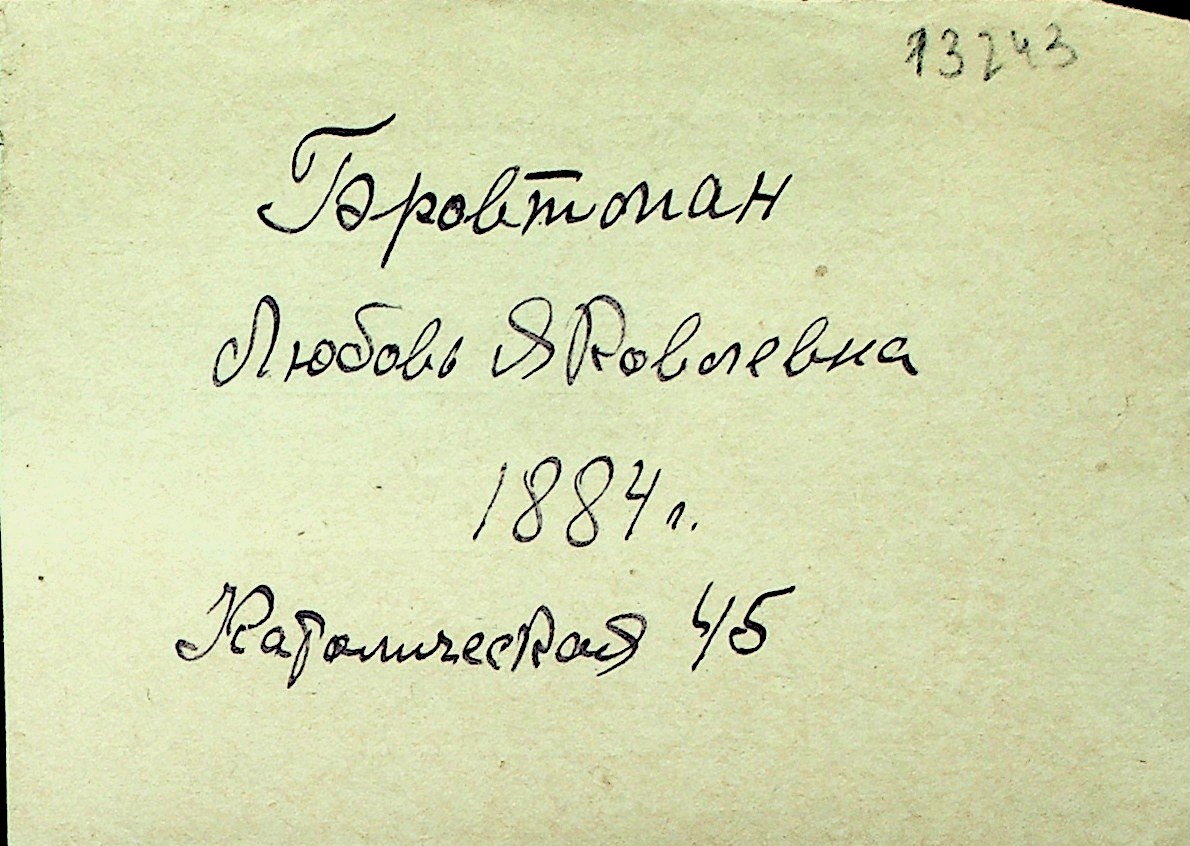 13243
Бровтман
Любовь Яковлевна
1884 г.
Католическая 45